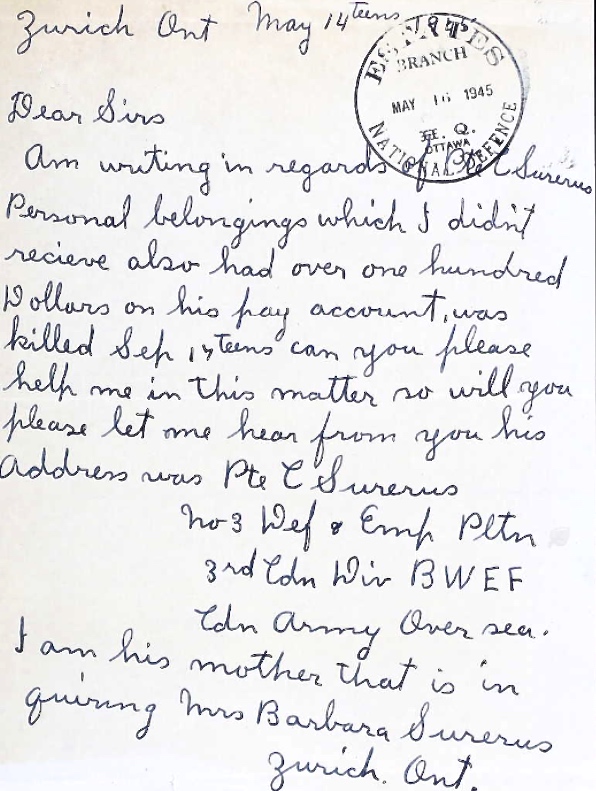 Zurich Ont May 14teens 1945
ESTATES
BRANCH
MAY 16 1945
H. Q.
OTTAWA
NATIONAL DEFENCE
Dear Sirs
Am writing in regards of Pte C Surerus
Personal belongings which I didn't
recieve also had over one hundred
Dollars on his pay account, was
killed Sep 17teens can you please
help me in this matter so will you
please let me hear from you his
Address was Pte C Surerus
No 3 Def & Emp Pltn
3rd Cdn Div BWEF
Cdn Army Over sea.
I am his mother that is in
quiring Mrs Barbara Surerus
Zurich. Ont.